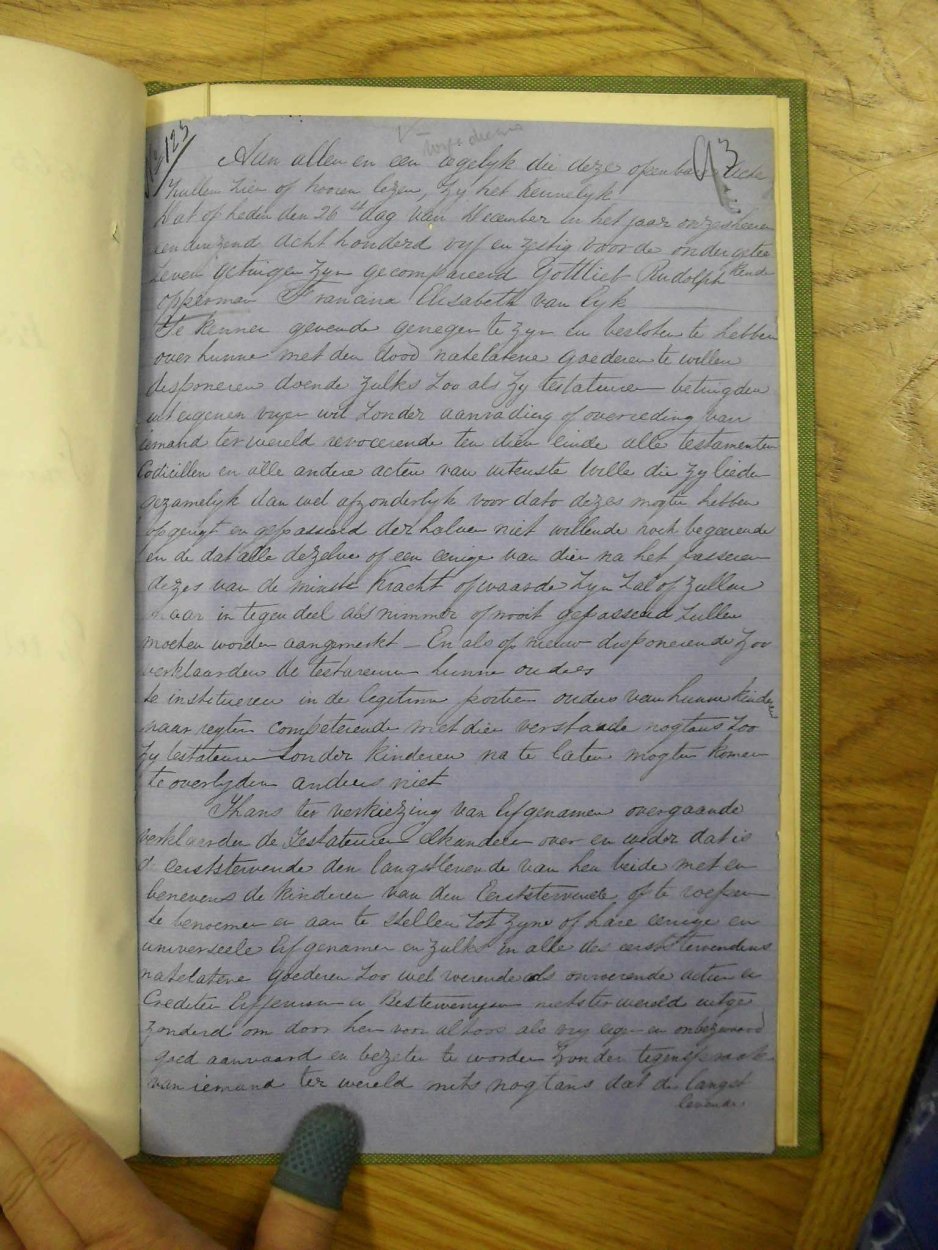 No 123
93
Aan allen en een iegelyk die deze openbare acte
Zullen zien of hooren lezen, Zy het kennelyk
Dat op heden den 26ste dag van December in het jaar onzes heeren
een duizend acht honderd vyf en zestig voor de ondergetee
kende
Zeven getuigen zyn gecompareerd Gottlieb Rudolph
opperman Francina Elisabeth van Eyk
Te kennen gevende genegen te zyn en besloten te hebben
over hunne met den dood natelatene goederen te willen
disponeren doende zulks zoo als zy testateuren betuigden
uit eigenen vryen wil Zonder aanrading of overreding van
iemand ter wereld revocerende ten dien einde alle testamenten
Codicillen en alle andere acten van uiterste wille die zy lieden
gezamelyk dan wel afzonderlyk voor dato dezes mogten hebben
opgerigt en gepasseerd derhalve niet willende noch begeerende
en de dat alle dezelve of een eenige van dien na het passeren
dezes van de minste Kracht of waarde Zyn Zal of Zullen
maar in tegendeel als nimmer of nooit gepasseerd Zullen
moeten worden aangemerkt – En als op nieuw disponerende Zoo
verklaarden de testateuren hunne ouders
te institueren in de legitime portien ouders van hunne kinderen
naar regten competerende met dien verstande nogtans Zoo
Zy testateuren Zonder Kinderen na te laten mogten komen
te overlyden anders niet
Thans ter verkiezing van Erfgenamen overgaande
verklaarden de Testateuren elkanderen over en weder dat is
d' eerststervende den langstlevende van hen beide met en
benevens de Kinderen van den Eerststervende, of te roepen
te benoemen en aan te stellen tot zyne of hare eenige en
universeele Erfgenamen en zulks in alle des eerststervendens
natelatene goederen Zoo wel roerende als onroerende actien en
Crediten Erffenissen en Besterwenissen niets ter wereld uitge
zonderd om door hen voor altoos als vry eigen en onbezwaard
goed aanvaard en bezeten te worden Zonder tegenspraak
van iemand ter wereld mits nogtans dat de langst
levende